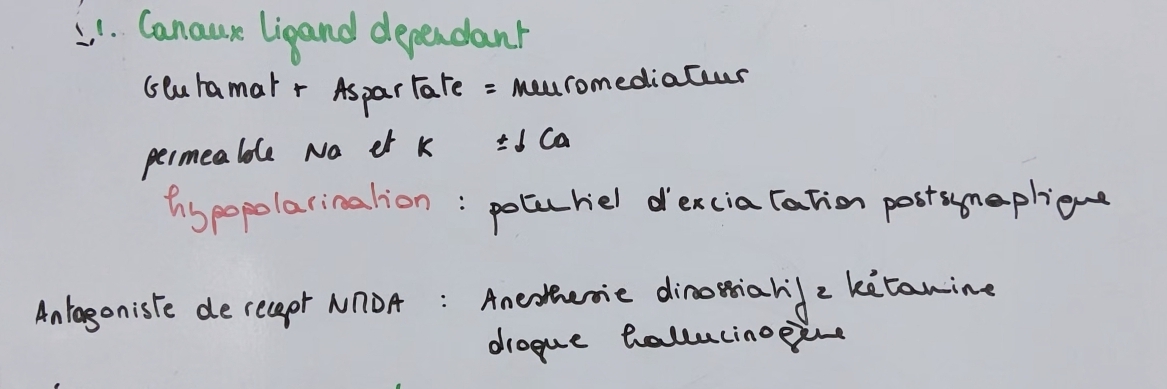 1. Canaux ligand dependant
Glutamat + Aspartate = neuromediateur
permeable Na et K ± ↓ Ca
hypopolarisation : potentiel d'exciatation postsynaptique
Antagoniste de recept NMDA : Anesthesie dissossiatif = kétamine
drogue hallucinogène